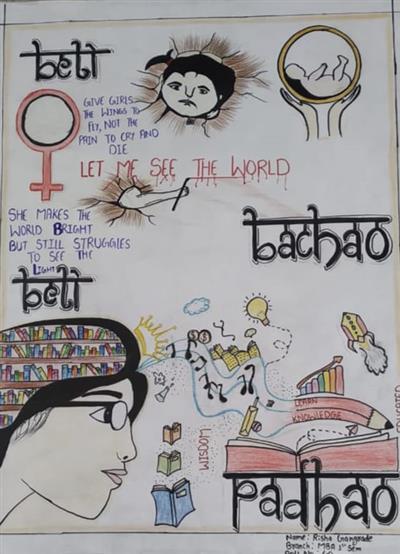 beti
GIVE GIRLS
THE WINGS TO
FLY, NOT THE
PAIN TO CRY AND
DIE
LET ME SEE THE WORLD
SHE MAKES THE
WORLD BRIGHT
BUT STILL STRUGGLES
TO SEE THE
LIGHT
bachao
beti
LEARN
KNOWLEDGE
WISDOM
EDUCATED
padhao
Name: Risha Gangrade
Branch: MBA 1st Sem
Roll No.: